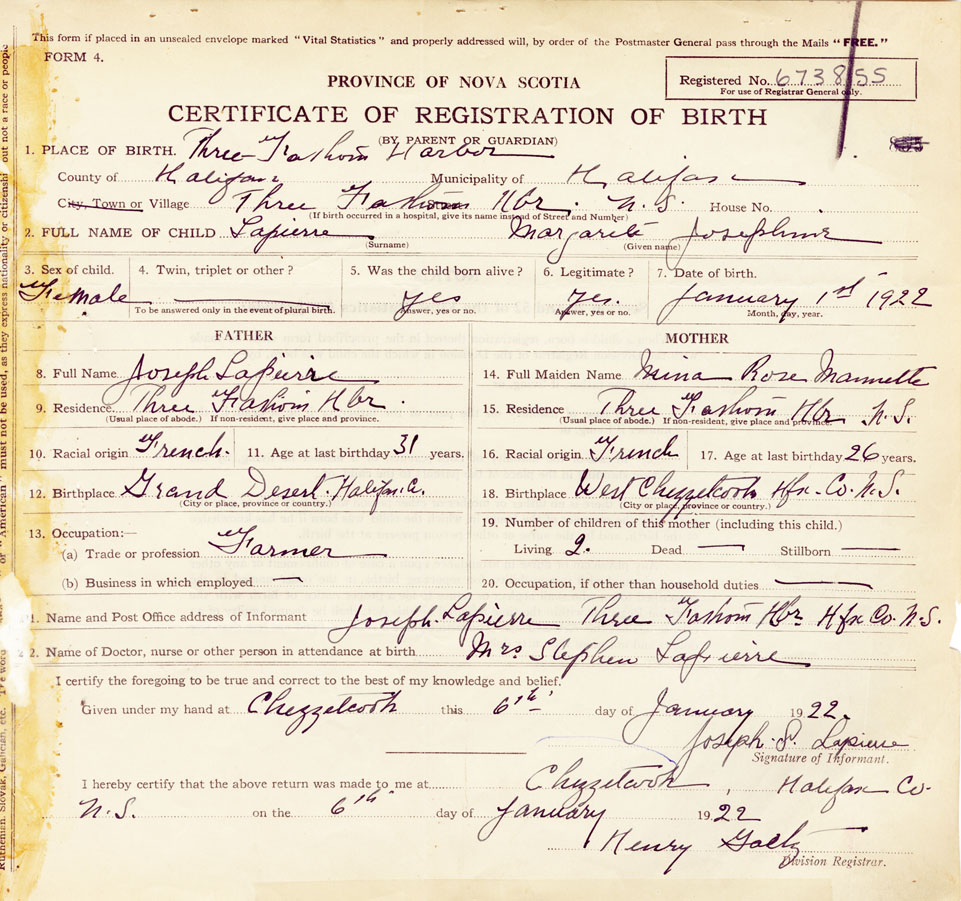 This form if placed in an unsealed envelope marked "Vital Statistics" and properly addressed will, by order of the Postmaster General pass through the Mails "FREE."
FORM 4.
PROVINCE OF NOVA SCOTIA
Registered No. 673855
For use of Registrar General only.
CERTIFICATE OF REGISTRATION OF BIRTH
(BY PARENT OR GUARDIAN)
1. PLACE OF BIRTH. Three Fathom Harbor
County of Halifax Municipality of Halifax
City, Town or Village Three Fathom Hbr. N.S. House No.
(If birth occurred in a hospital, give its name instead of Street and Number)
2. FULL NAME OF CHILD Lapierre Margarite Josephine
(Surname) (Given name)
3. Sex of child. 4. Twin, triplet or other? 5. Was the child born alive? 6. Legitimate? 7. Date of birth.
Female yes yes. January 1st 1922
To be answered only in the event of plural birth. Answer, yes or no. Answer, yes or no. Month, day, year.
FATHER MOTHER
8. Full Name Joseph Lapierre 14. Full Maiden Name Mina Rose Mannette
9. Residence Three Fathom Hbr. 15. Residence Three Fathom Hbr N.S.
(Usual place of abode.) If non-resident, give place and province. (Usual place of abode.) If non-resident, give place and province.
10. Racial origin French. 11. Age at last birthday 31 years. 16. Racial origin French 17. Age at last birthday 26 years.
12. Birthplace Grand Desert. Halifax. Co. 18. Birthplace West Chezzetcook Hfx. Co. N.S.
(City or place, province or country.) (City or place, province or country.)
13. Occupation:— 19. Number of children of this mother (including this child.)
(a) Trade or profession Farmer Living 2. Dead — Stillborn —
(b) Business in which employed — 20. Occupation, if other than household duties —
1. Name and Post Office address of Informant Joseph Lapierre Three Fathom Hbr Hfx Co. N.S.
2. Name of Doctor, nurse or other person in attendance at birth Mrs Stephen Lapierre
I certify the foregoing to be true and correct to the best of my knowledge and belief.
Given under my hand at Chezzetcook this 6th day of January 1922.
Joseph S. Lapierre
Signature of Informant.
I hereby certify that the above return was made to me at Chezzetcook, Halifax Co.
N.S. on the 6th day of January 1922
Henry
Division Registrar.
or "American" must not be used, as they express nationality or citizenship but not a race or people
Ruthenian, Slovak, Galician, etc. The word